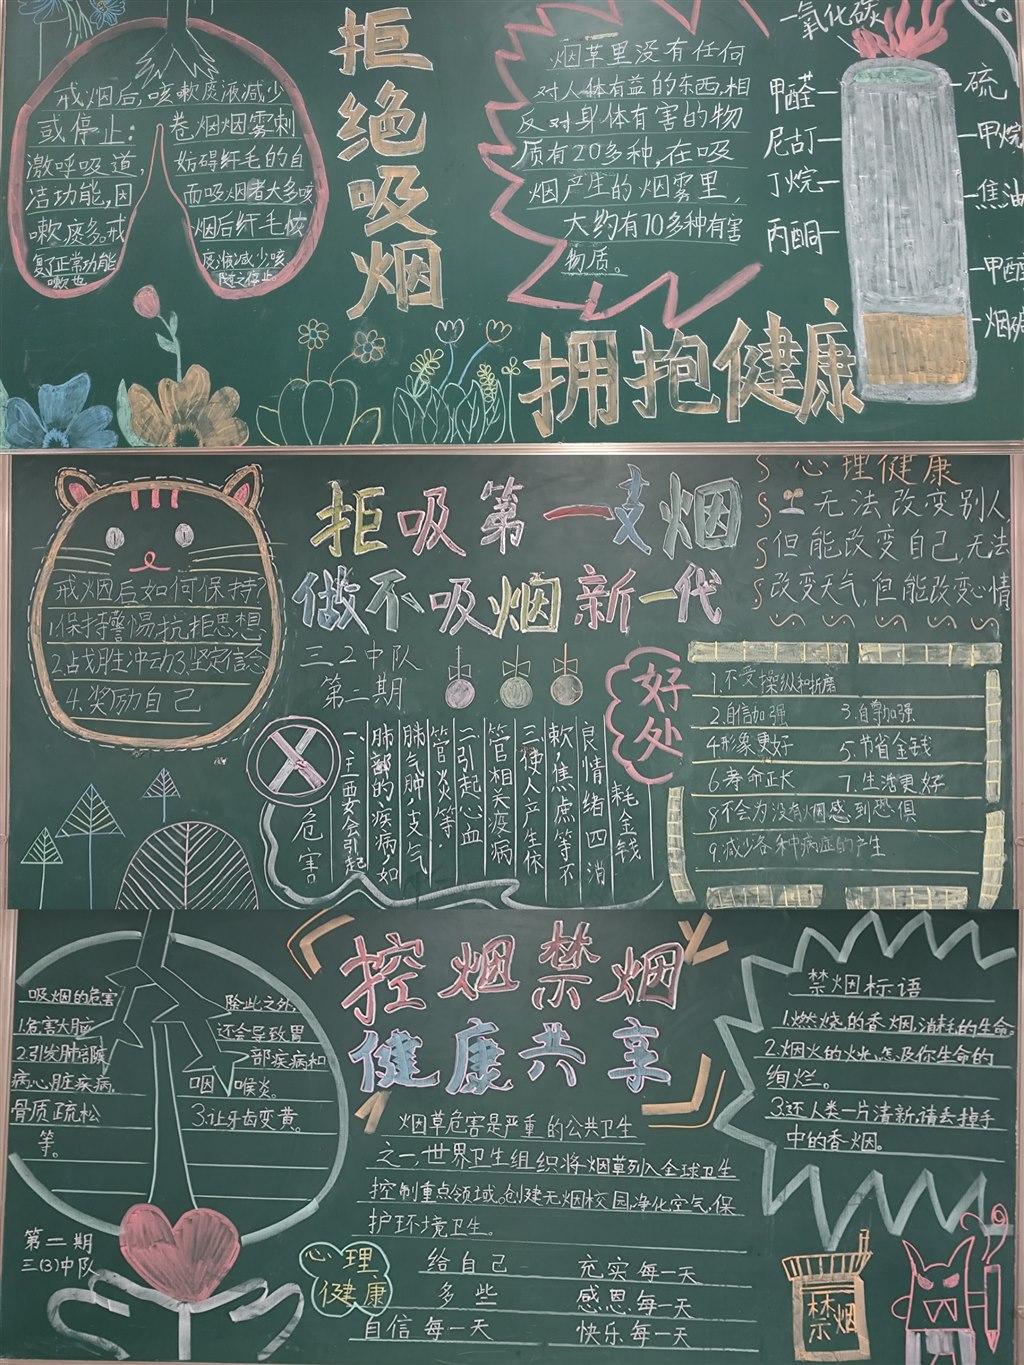 戒烟后,咳嗽痰液减少
或停止:卷烟烟雾刺
激呼吸道,妨碍纤毛的自
洁功能,因而吸烟者大多咳
嗽痰多。戒烟后纤毛恢
复了正常功能痰液减少咳
嗽也随之停止。
拒绝吸烟
烟草里没有任何
对人体有益的东西,相
反对身体有害的物
质有20多种,在吸
烟产生的烟雾里,
大约有70多种有害
物质。
一氧化碳
甲醛
尼古丁
丁烷
丙酮
硫
甲烷
焦油
甲醛
烟碱
拥抱健康
戒烟后如何保持?
1.保持警惕抗拒思想
2.占战胜冲动3.坚定信念
4.奖励自己
拒吸第一支烟
做不吸烟新一代
三2中队
第二期
心理健康
无法改变别人
但能改变自己,无法
改变天气,但能改变心情
危害
一、主要会引起
肺部的疾病,如
肺气肿,支气
管炎等.
二引起心血
管相关疫病
三、使人产生依
软,焦虑等不
良情绪四消
耗金钱
好处
1.不受操纵和折磨
2.自信加强 3.自尊加强
4形象更好 5.节省金钱
6寿命正长 7.生活更好
8不会为没有烟感到恐惧
9.减少各种病症的产生
吸烟的危害
1.危害大脑
2.引发肺部
病,心脏疾病,
骨质疏松
等。
除此之外,
还会导致胃
部疾病和
咽喉炎。
3.让牙齿变黄。
第二期
三(3)中队
控烟禁烟
健康共享
烟草危害是严重的公共卫生
之一,世界卫生组织将烟草列入全球卫生
控制重点领域。创建无烟校园,净化空气,保
护环境卫生。
心理健康
给自己 充实每一天
多些 感恩每一天
自信每一天 快乐每一天
禁烟标语
1.燃烧的香烟,消耗的生命。
2.烟火的火光,怎及你生命的
绚烂。
3.还人类一片清新,请丢掉手
中的香烟。
禁烟